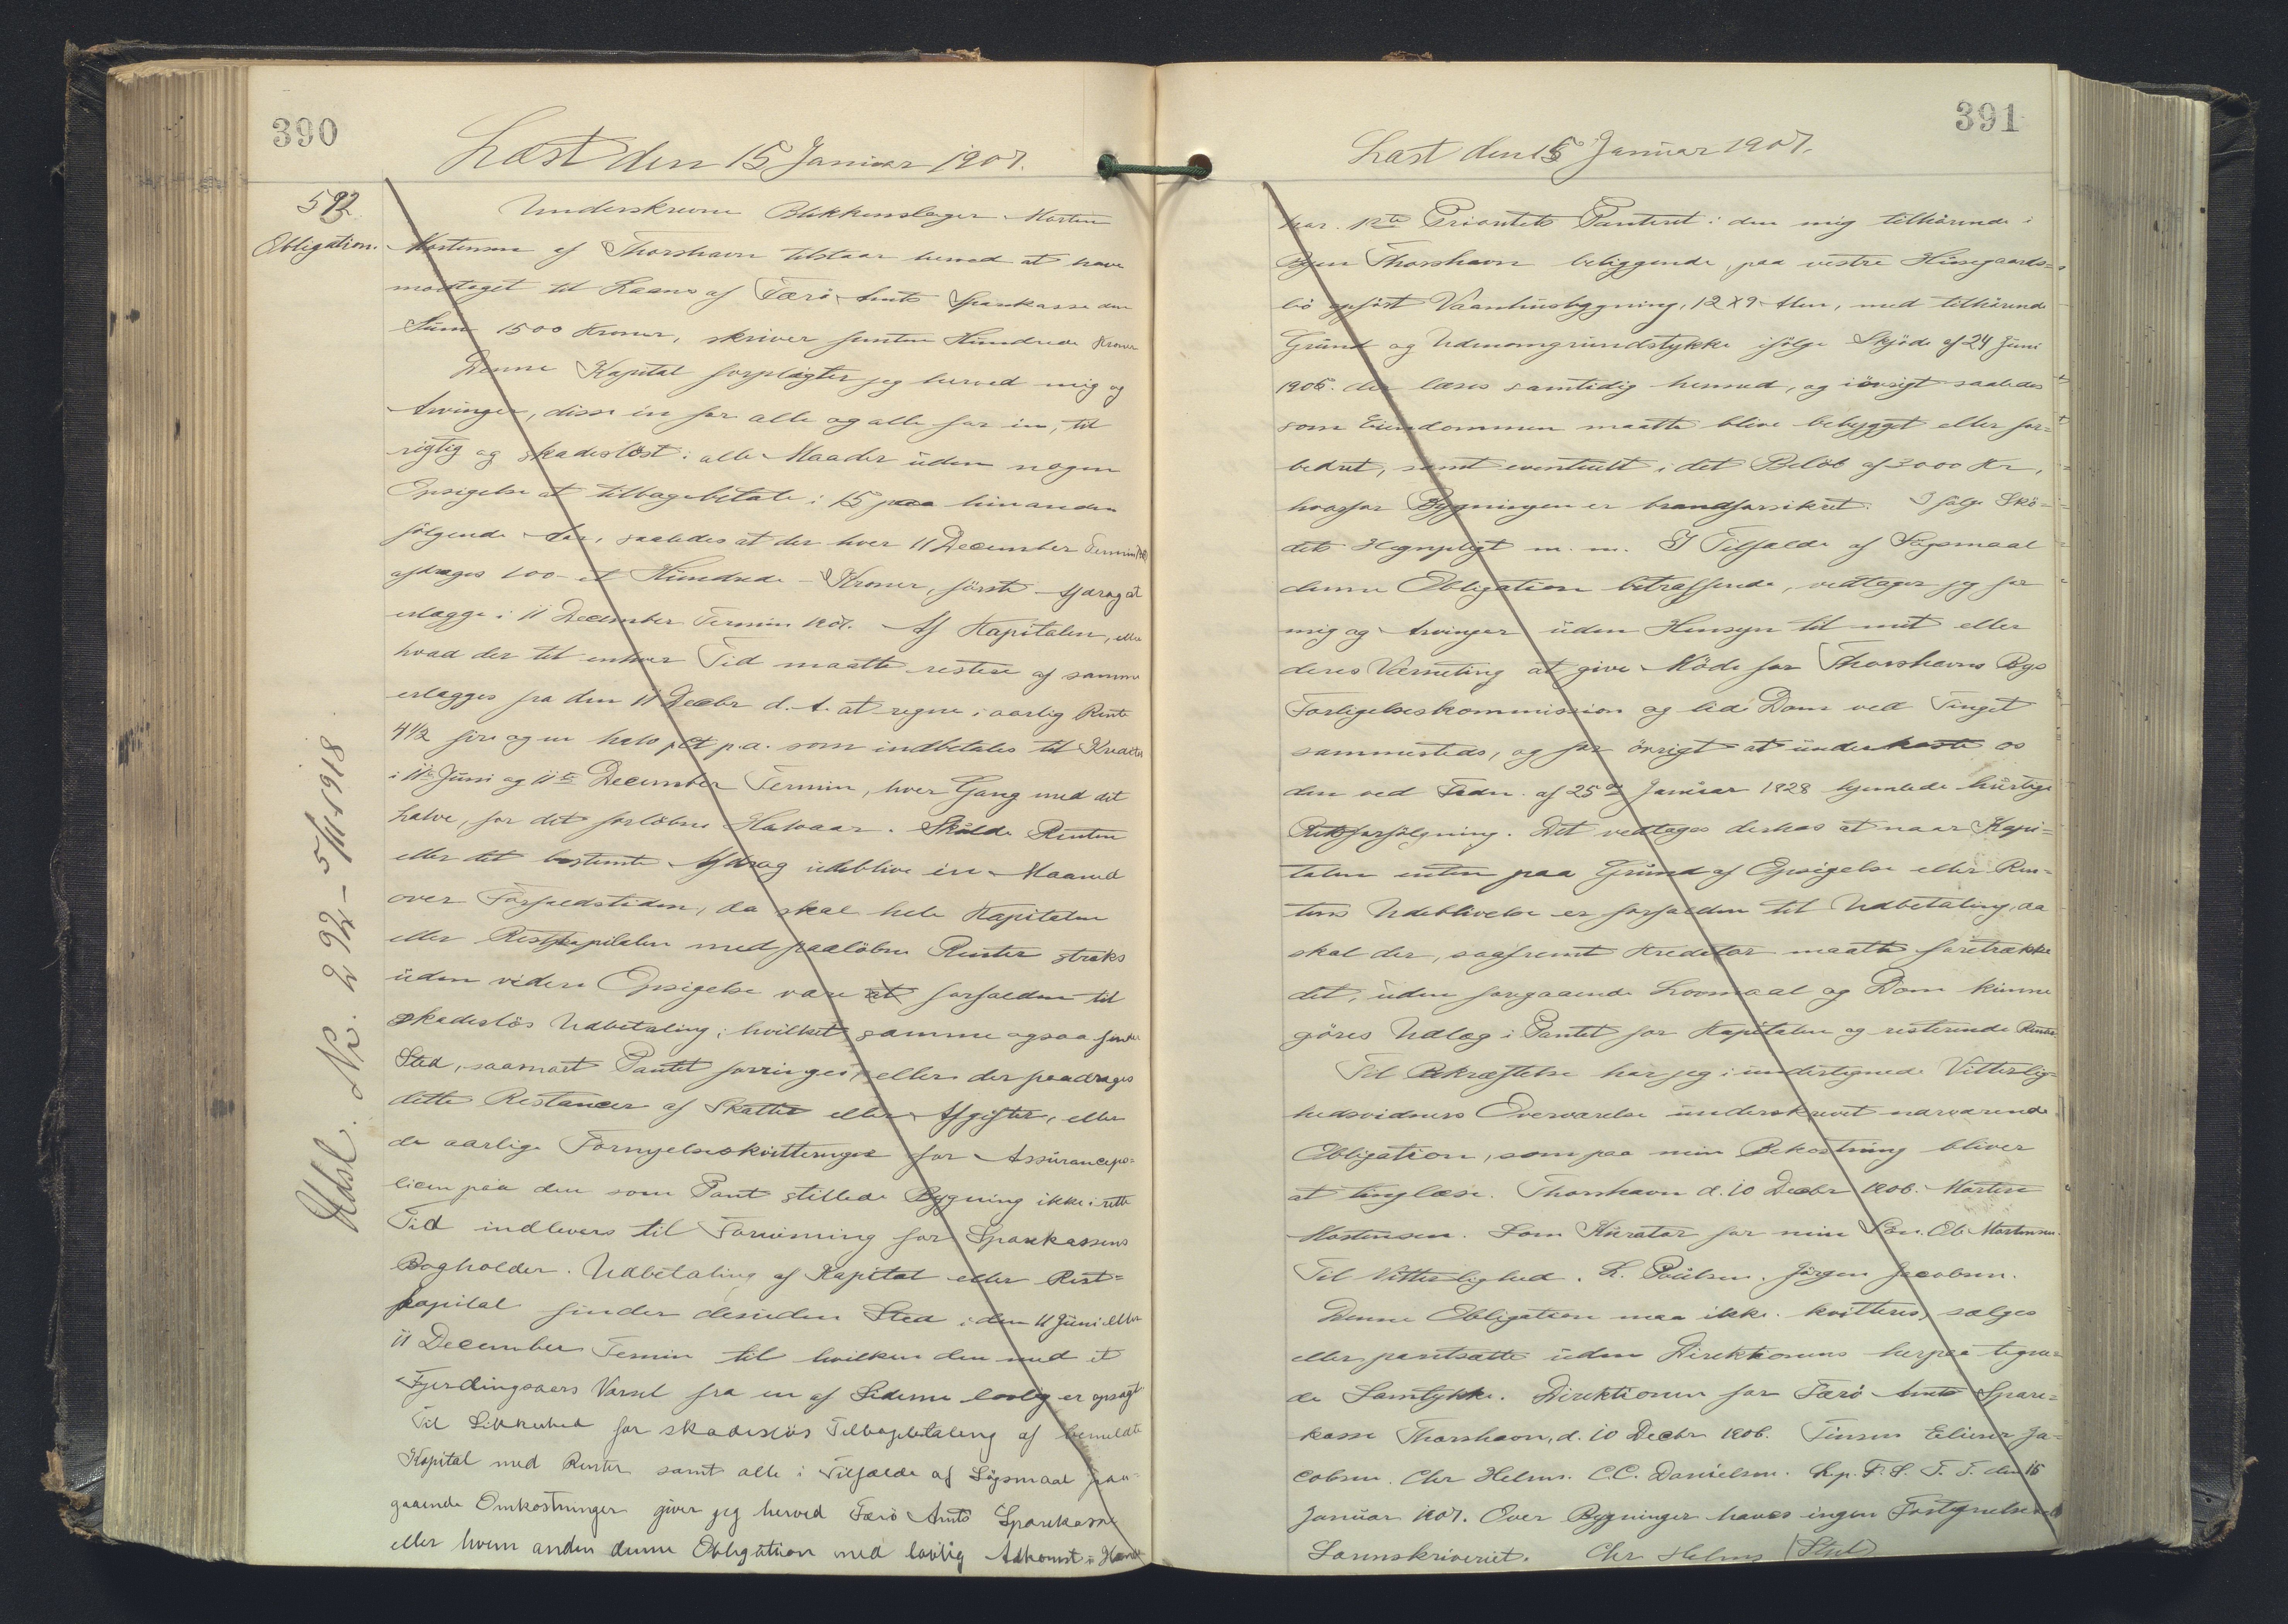 390
Læst den 15 Januar 1907.
592
Obligation.
Underskrevne Blikkenslager Morten
Mortensen af Thorshavn tilstaar herved at have
modtaget til Laans af Færö Amts Sparekasse den
Sum 1500 Kroner, skriver femten Hundrede Kroner
Denne Kapital forpligter jeg herved mig og
Arvinger, disse en for alle og alle for en, til
rigtig og skadeslöst i alle Maader uden nogen
Opsigelse at tilbagebetale i 15 paa hinanden
fölgende Aar, saaledes at der hver 11 December Termin
afdrages 100 - et Hundrede - Kroner, förste Afdrag at
erlægge i 11 December Termin 1907. Af Kapitalen, eller
hvad der til enhver Tid maatte restere af samme
erlægges fra den 11 Decbr d. A. at regne i aarlig Rente
4½ fire og en halv pCt p.a. som indbetales til Kreditor
i 11te Juni og 11te December Termin, hver Gang med det
halve, for det forlöbne Halvaar. Skulde Renten
eller det bestemte Afdrag udeblive en Maaned
over Forfaldstiden, da skal hele Kapitalen
eller Restkapitalen med paalöbne Renter straks
uden videre Opsigelse være at forfalden til
skadeslös Udbetaling; hvilket samme ogsaa finder
Sted, saasnart Pantet forringes, eller der paadrages
dette Restancer af Skatter eller Afgifter, eller
de aarlige Fornyelseskvitteringer for Assurancepo=
licen paa den som Pant stillede Bygning ikke i rette
Tid indleveres til Forevisning for Sparekassens
Bogholder. Udbetaling af Kapital eller Rest=
kapital finder desuden Sted i den 11 Juni eller
11 December Termin til hvilken den med et
Fjerdingaars Varsel fra en af Siderne lovlig er opsagt
Til Sikkerhed for skadeslös Tilbagebetaling af bemeldte
Kapital med Renter samt alle i Tilfælde af Sögsmaal paa=
gaaende Omkostninger giver jeg herved Færö Amts Sparekasse
eller hvem anden denne Obligation med lovlig Adkomst i Hænde
Udsl. Nr. 292 - 5/11 1918
391
Læst den 15 Januar 1907.
har. 1ste Prioritets Panteret i den mig tilhörende i
Byen Thorshavn beliggende, paa vestre Husegaards=
bö opfört Vaanhusbygning, 12 x 9 Alen, med tilhörende
Grund og Udenomgrundstykke ifölge Skjöde af 24 Juni
1905. der læses samtidig hermed, og iövrigt saaledes
som Eiendommen maatte blive bebygget eller for=
bedret, samt eventuelt i det Belöb af 3000 Kr,
hvorfor Bygningen er brandforsikret. Ifölge Skö=
dets Hegnpligt m. m. I Tilfælde af Sögsmaal
denne Obligation betræffende, vedtager jeg for
mig og Arvinger uden Hensyn til mit eller
deres Værneting at give Möde for Thorshavns Bys
Forligelseskommission og lide Dom ved Tinget
sammesteds, og for övrigt at underkaste os
den ved Frdn. af 25de Januar 1828 hjemlede hurtige
Retsforfölgning. Det vedtages derhos at naar Kapi=
talen enten paa Grund af Opsigelse eller Ren=
tens Udeblivelse er forfalden til Udbetaling, da
skal der, saafremt Kreditor maatte foretrække
det, uden forgaaende Lovmaal og Dom kunne
göres Udlæg i Pantet for Kapitalen og resterende Renter.
Til Bekræftelse har jeg i undertegnede Vitterlig=
hedsvidners Overværelse underskrevet nærværende
Obligation, som paa min Bekostning bliver
at tinglæse. Thorshavn d. 10 Decbr 1906. Morten
Mortensen. Som Kurator for min Sön. Ole Mortensen.
Til Vitterlighed. L. Poulsen. Jörgen Jacobsen.
Denne Obligation maa ikke kvitteres, sælges
eller pantsætte uden Direktionens herpaa tegne=
de Samtykke. Direktionen for Færö Amts Spare=
kasse Thorshavn, d. 10 Decbr 1906. Elieser Ja=
cobsen. Chr Helms. C.C. Danielsen. den 15
Januar 1907. Over Bygninger haves ingen
Sorenskriveriet. Chr Helms